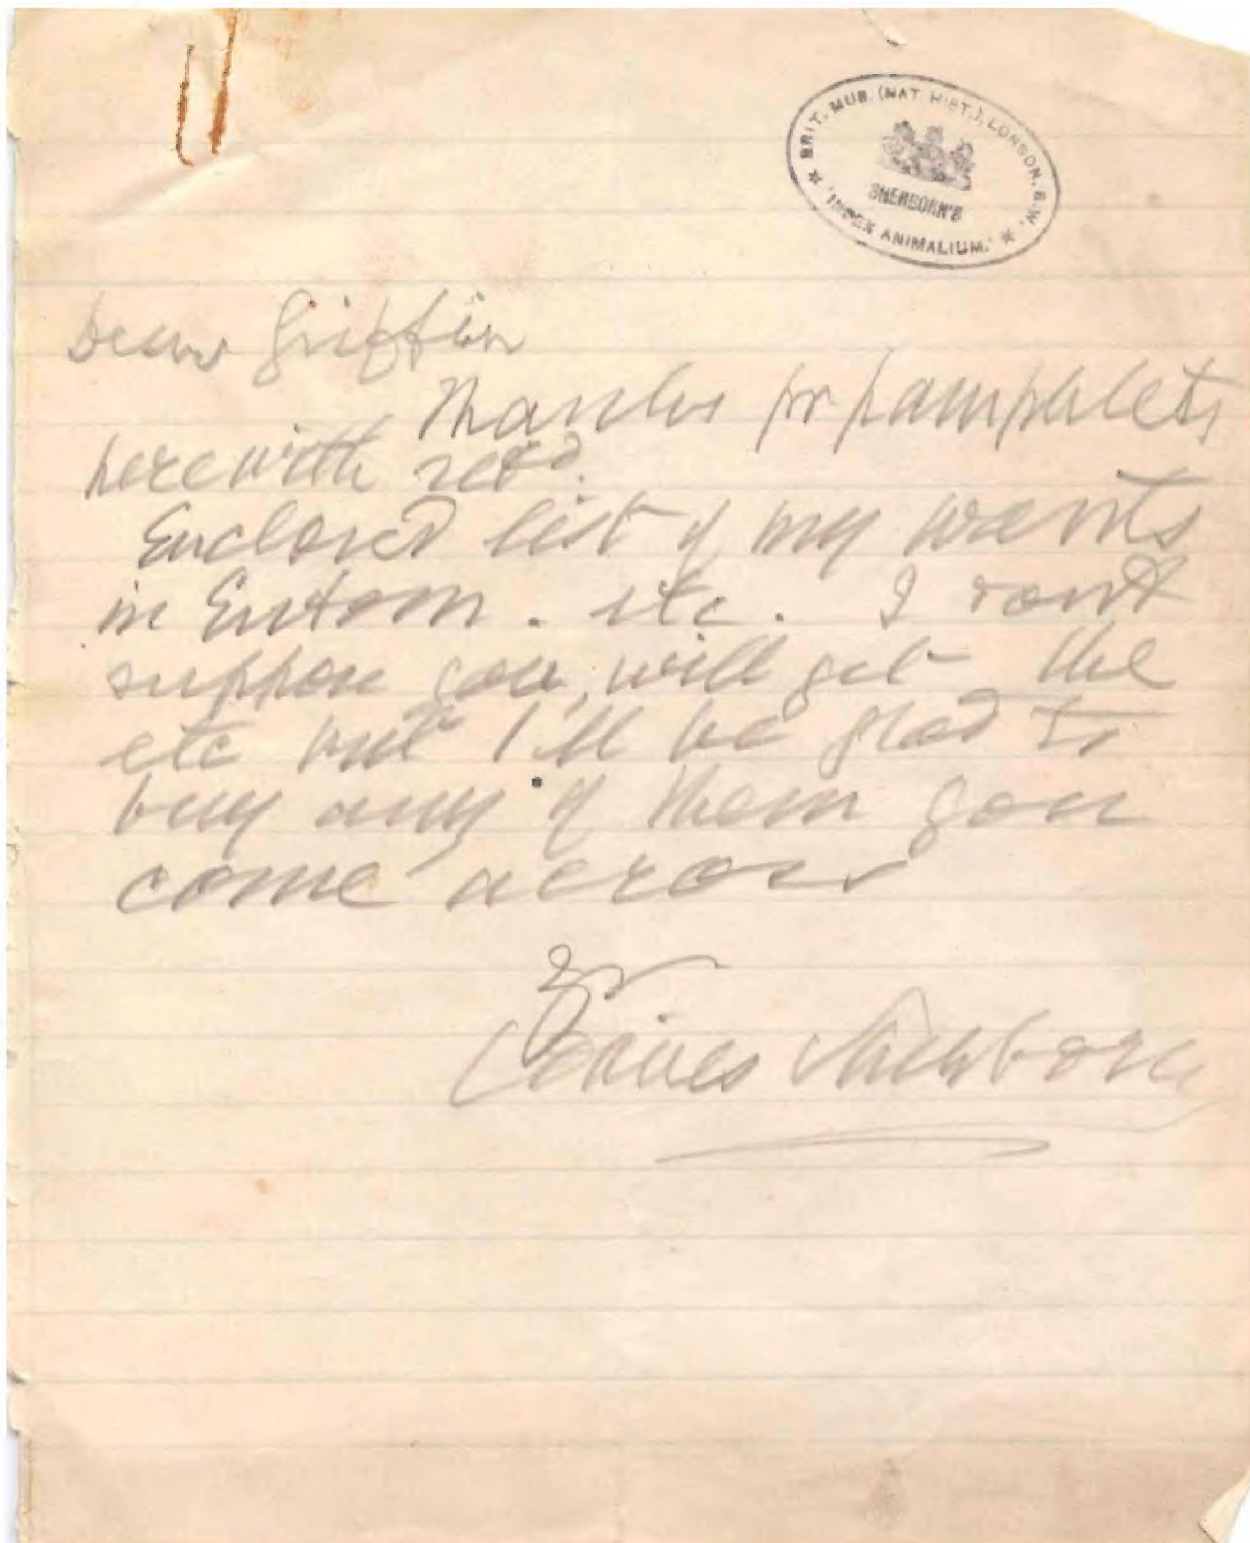 ★ BRIT. MUS. (NAT. HIST.), LONDON. S.W. ★
SHERBORN'S
'INDEX ANIMALIUM.'
Dear Griffin
Thanks for pamphlets
herewith retd.
Enclosed list of my wants
in Entom. etc. I dont
suppose you will get the
etc but I'll be glad to
buy any of them you
come across
Yr
Davies Sherborn